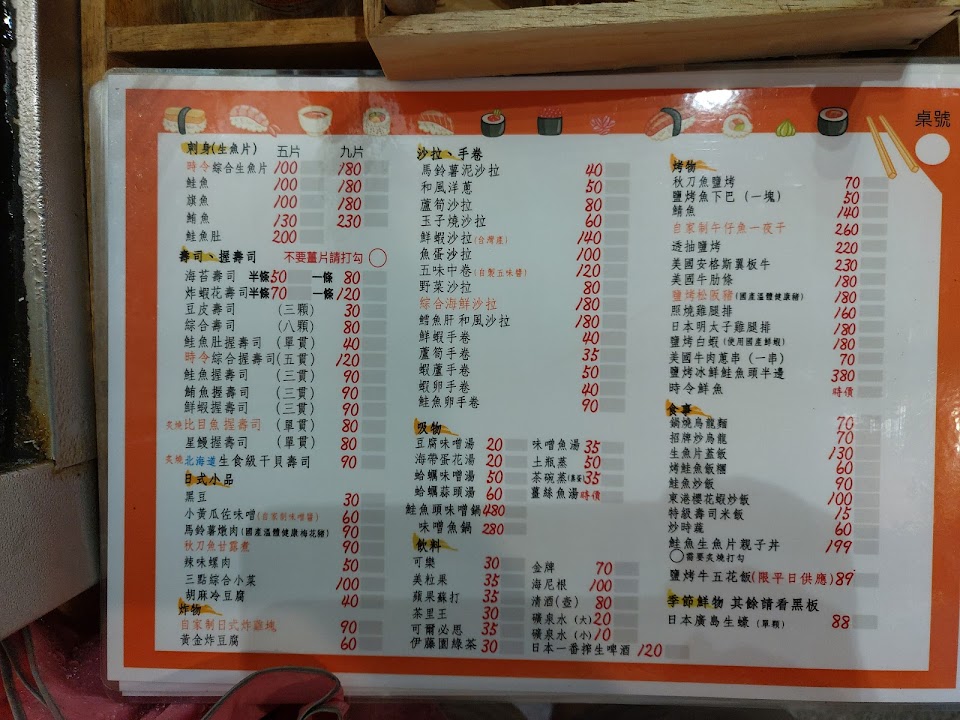 桌號
刺身(生魚片) 五片 九片
時令綜合生魚片 100 180
鮭魚 100 180
旗魚 100 180
鮪魚 130 230
鮭魚肚 200
壽司、握壽司 不要薑片請打勾
海苔壽司 半條50 一條 80
炸蝦花壽司 半條70 一條 120
豆皮壽司 (三顆) 30
綜合壽司 (八顆) 80
鮭魚肚握壽司 (單貫) 40
時令綜合握壽司(五貫) 120
鮭魚握壽司 (三貫) 90
鮪魚握壽司 (三貫) 90
鮮蝦握壽司 (三貫) 90
炙燒比目魚握壽司 (單貫) 80
星鰻握壽司 (單貫) 80
炙燒北海道生食級干貝壽司 90
日式小品
黑豆 30
小黃瓜佐味噌(自家製味噌醬) 60
馬鈴薯燉肉(國產溫體健康梅花豬) 90
秋刀魚甘露煮 90
辣味螺肉 50
三點綜合小菜 100
胡麻冷豆腐 40
炸物
自家制日式炸雞塊 90
黃金炸豆腐 60
沙拉、手卷
馬鈴薯泥沙拉 40
和風洋蔥 50
蘆筍沙拉 80
玉子燒沙拉 60
鮮蝦沙拉(台灣產) 140
魚蛋沙拉 100
五味中卷(自製五味醬) 120
野菜沙拉 80
綜合海鮮沙拉 180
鱈魚肝和風沙拉 180
鮮蝦手卷 40
蘆筍手卷 35
蝦蘆手卷 50
蝦卵手卷 40
鮭魚卵手卷 90
吸物
豆腐味噌湯 20 味噌魚湯 35
海帶蛋花湯 20 土瓶蒸 50
蛤蠣味噌湯 50 茶碗蒸 35
蛤蠣蒜頭湯 60 薑絲魚湯 時價
鮭魚頭味噌鍋 480
味噌魚鍋 280
飲料
可樂 30 金牌 70
美粒果 35 海尼根 100
蘋果蘇打 35 清酒(壺) 80
茶里王 30 礦泉水 (大) 20
可爾必思 35 礦泉水 (小) 10
伊藤園綠茶 30 日本一番搾生啤酒 120
烤物
秋刀魚鹽烤 70
鹽烤魚下巴 (一塊) 50
鯖魚 140
自家制午仔魚一夜干 260
透抽鹽烤 220
美國安格斯翼板牛 230
美國牛肋條 180
鹽烤松阪豬(國產溫體健康豬) 180
照燒雞腿排 160
日本明太子雞腿排 180
鹽烤白蝦(使用國產鮮蝦) 180
美國牛肉蔥串 (一串) 70
鹽烤冰鮮鮭魚頭半邊 380
時令鮮魚 時價
食事
鍋燒烏龍麵 70
招牌炒烏龍 70
生魚片蓋飯 130
烤鮭魚飯糰 60
鮭魚炒飯 90
東港櫻花蝦炒飯 100
特級壽司米飯 15
炒時蔬 60
鮭魚生魚片親子丼 199
需要炙燒打勾
鹽烤牛五花飯(限平日供應) 89
季節鮮物 其餘請看黑板
日本廣島生蠔 (單顆) 88